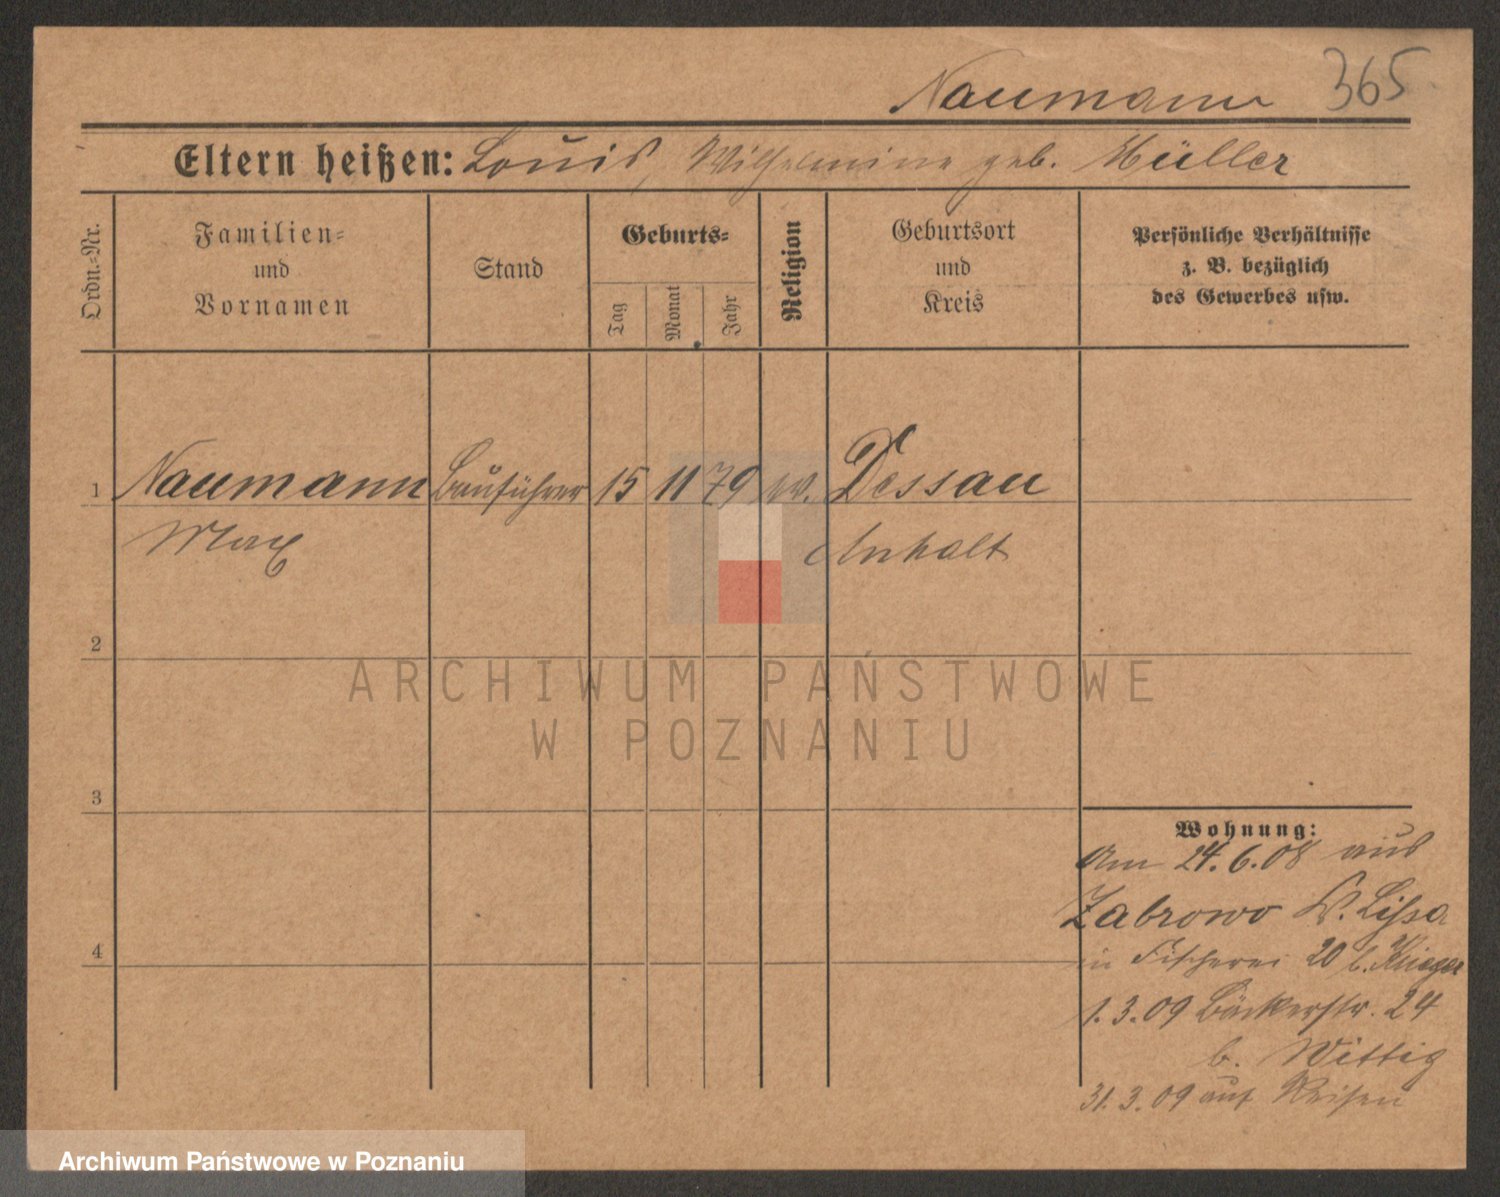 Naumann 365
Eltern heißen: Louis, Wilhelmine geb. Müller
Ordn.-Nr.
Familien- und Vornamen
Stand
Geburts-
Tag
Monat
Jahr
Religion
Geburtsort und Kreis
Persönliche Verhältnisse
z. B. bezüglich
des Gewerbes usw.
1 Naumann Bauführer 15 11 79 Dessau
Max Anhalt
2
ARCHIWUM PAŃSTWOWE
W POZNANIU
3
Wohnung:
Am 24.6.08 aus
Zabrowo Lissa
in Fischerei 20 b. Krieger
1.3.09 Bäckerstr. 24
b. Wittig
31.3.09 auf Reisen
4
Archiwum Państwowe w Poznaniu